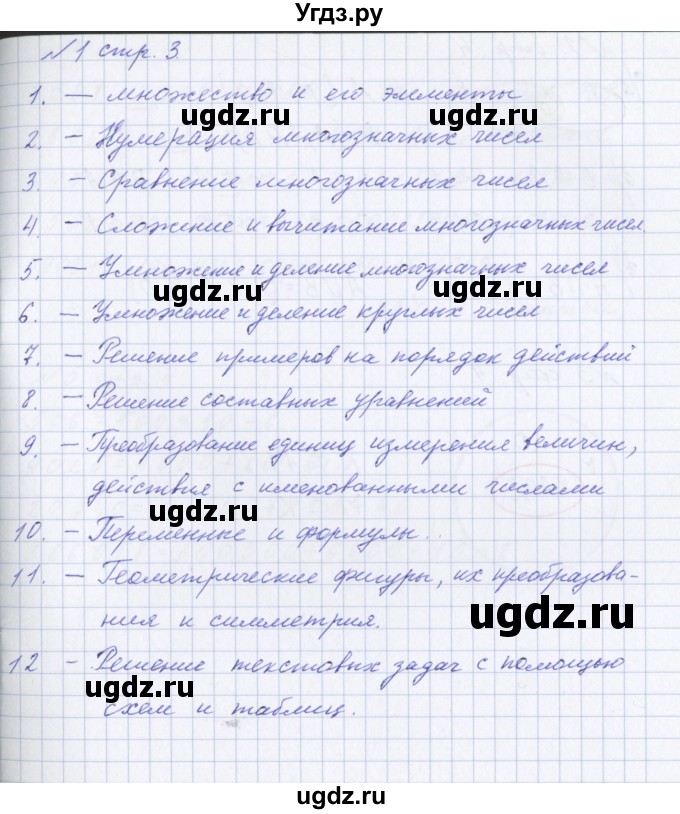 Угдз.ру
№1 стр. 3
1. — множество и его элементы
ugdz.ru ugdz.ru
2. — Нумерация многозначных чисел
3. — Сравнение многозначных чисел
4. — Сложение и вычитание многозначных чисел.
5. — Умножение и деление многозначных чисел
ugdz.ru ugdz.ru
6. — Умножение и деление круглых чисел
7. — Решение примеров на порядок действий
8. — Решение составных уравнений
ugdz.ru ugdz.ru
9. — Преобразование единиц измерения величин,
действия с именованными числами
ugdz.ru
10. — Переменные и формулы.
11. — Геометрические фигуры, их преобразова-
ния и симметрия.
ugdz.ru
12 — Решение текстовых задач с помощью
ugdz.ru
схем и таблиц.
ugdz.ru